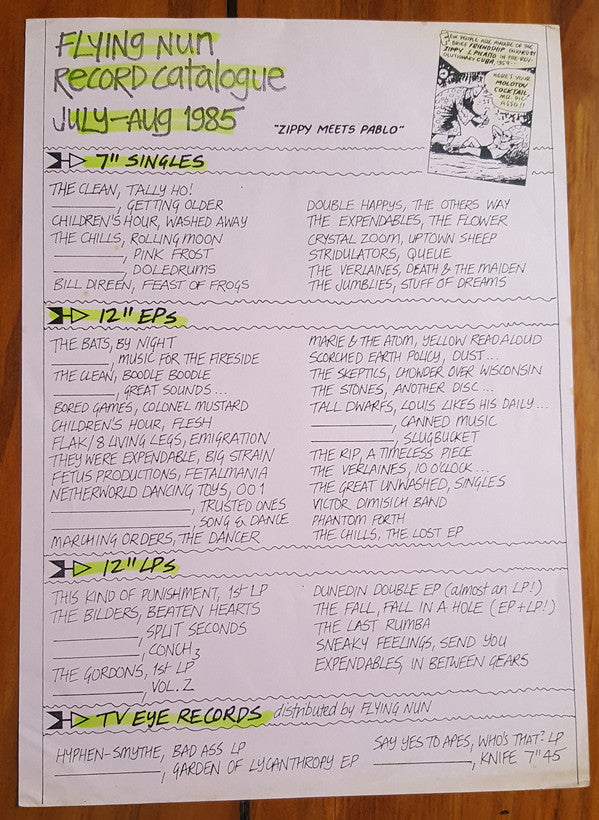 FLYING NUN
RECORD CATALOGUE
JULY-AUG 1985
"ZIPPY MEETS PABLO"
FEW PEOPLE ARE AWARE OF THE
BRIEF FRIENDSHIP ENJOYED BY
ZIPPY & PICASSO IN PRE-REV-
OLUTIONARY CUBA, 1959...
HERE'S YOUR
MOLOTOV
COCKTAIL,
MR. PIC-
ASSO!!
7" SINGLES
THE CLEAN, TALLY HO!
, GETTING OLDER
CHILDREN'S HOUR, WASHED AWAY
THE CHILLS, ROLLING MOON
, PINK FROST
, DOLEDRUMS
BILL DIREEN, FEAST OF FROGS
DOUBLE HAPPYS, THE OTHERS WAY
THE EXPENDABLES, THE FLOWER
CRYSTAL ZOOM, UPTOWN SHEEP
STRIDULATORS, QUEUE
THE VERLAINES, DEATH & THE MAIDEN
THE JUMBLIES, STUFF OF DREAMS
12" EPs
THE BATS, BY NIGHT
, MUSIC FOR THE FIRESIDE
THE CLEAN, BOODLE BOODLE
, GREAT SOUNDS...
BORED GAMES, COLONEL MUSTARD
CHILDREN'S HOUR, FLESH
FLAK/8 LIVING LEGS, EMIGRATION
THEY WERE EXPENDABLE, BIG STRAIN
FETUS PRODUCTIONS, FETALMANIA
NETHERWORLD DANCING TOYS, 001
, TRUSTED ONES
, SONG & DANCE
MARCHING ORDERS, THE DANCER
MARIE & THE ATOM, YELLOW READ ALOUD
SCORCHED EARTH POLICY, DUST...
THE SKEPTICS, CHOWDER OVER WISCONSIN
THE STONES, ANOTHER DISC...
TALL DWARFS, LOUIS LIKES HIS DAILY...
, CANNED MUSIC
, SLUGBUCKET
THE RIP, A TIMELESS PIECE
THE VERLAINES, 10 O'CLOCK...
THE GREAT UNWASHED, SINGLES
VICTOR DIMISICH BAND
PHANTOM FORTH
THE CHILLS, THE LOST EP
12" LPs
THIS KIND OF PUNISHMENT, 1st LP
THE BILDERS, BEATEN HEARTS
, SPLIT SECONDS
, CONCH 3
THE GORDONS, 1st LP
, VOL. 2
DUNEDIN DOUBLE EP (almost an LP!)
THE FALL, FALL IN A HOLE (EP+LP!)
THE LAST RUMBA
SNEAKY FEELINGS, SEND YOU
EXPENDABLES, IN BETWEEN GEARS
TV EYE RECORDS distributed by FLYING NUN
HYPHEN-SMYTHE, BAD ASS LP
, GARDEN OF LYCANTHROPY EP
SAY YES TO APES, WHO'S THAT? LP
, KNIFE 7" 45